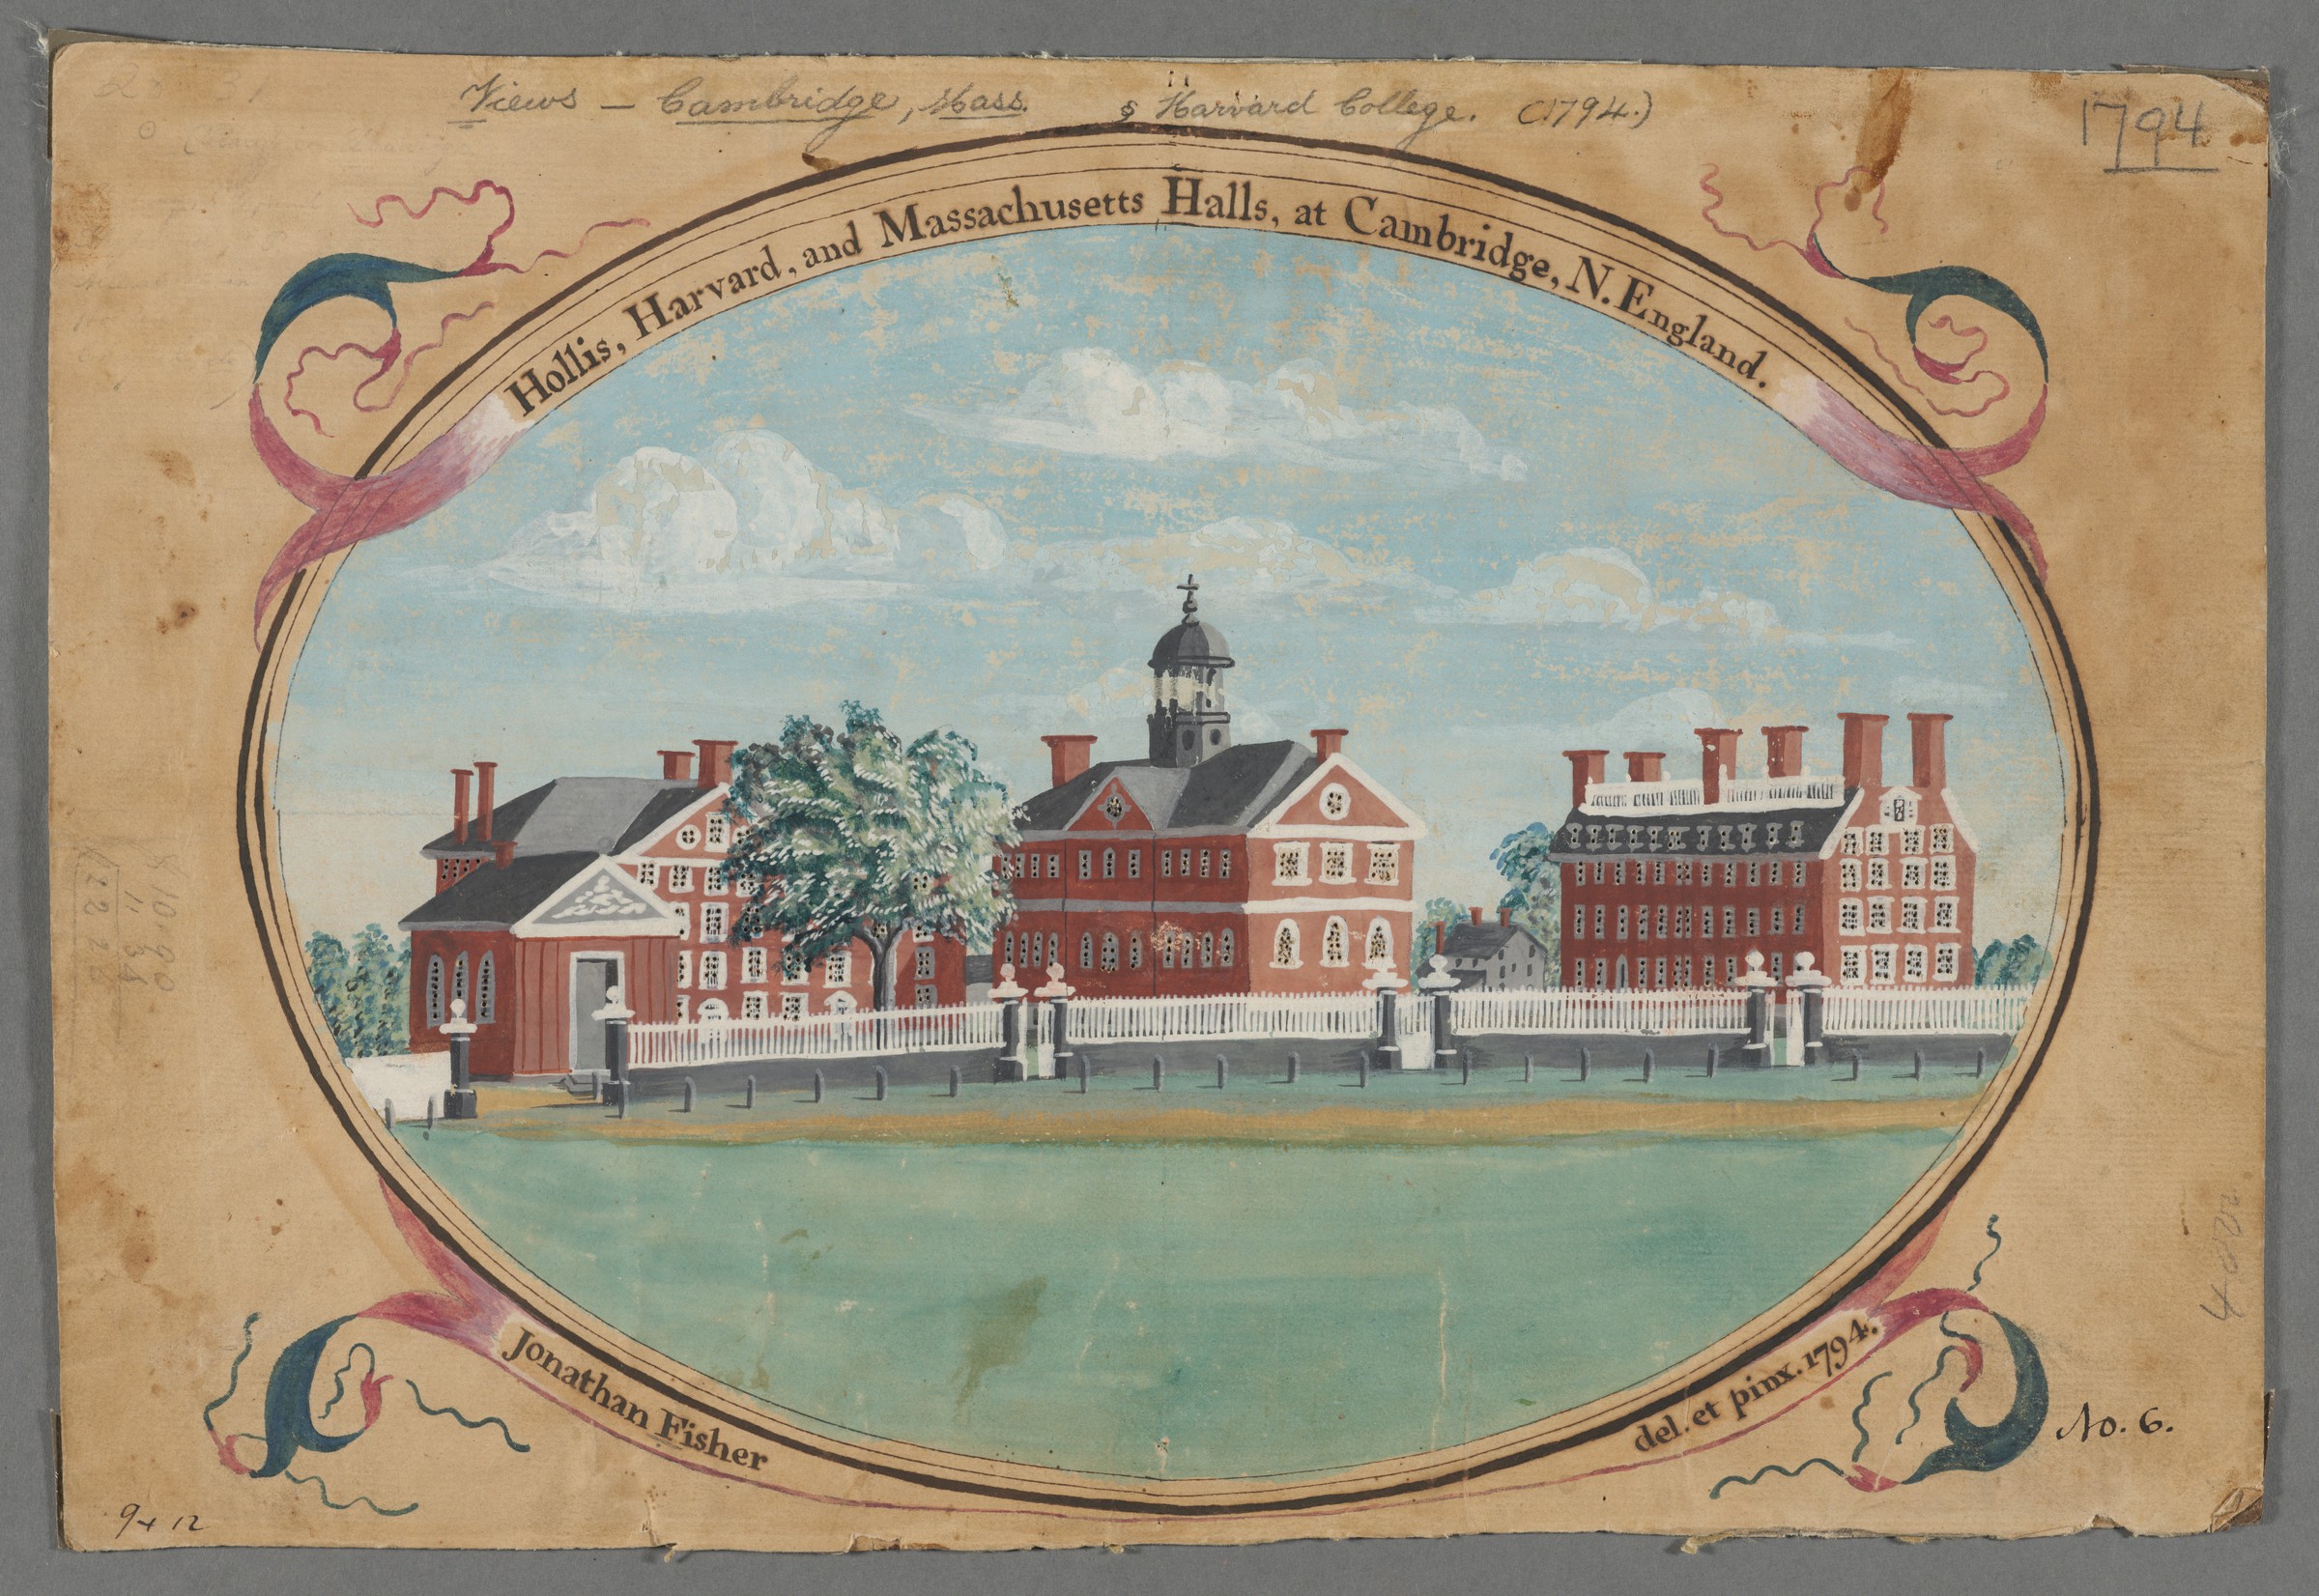 Views — Cambridge, Mass. & Harvard College. (1794.)
1794
Hollis, Harvard, and Massachusetts Halls, at Cambridge, N. England.
Jonathan Fisher
del. et pinx. 1794.
No. 6.
9 x 12